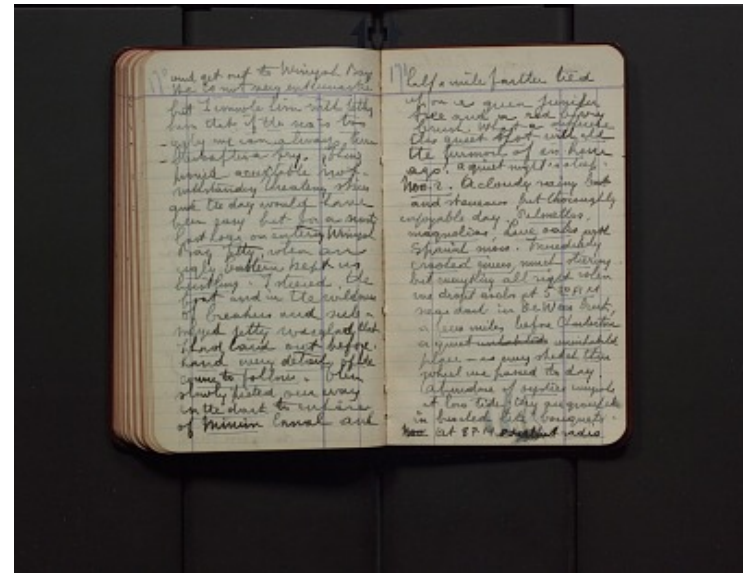 170
and get out to Winyah Bay
He is not very enthusiastic
but I console him with letting
him that if the sea is too
ugly we can always turn
back after a try. This
proved acceptable not-
withstanding threatening skies
and the day would have
been easy but for a nasty
last hour on entering Winyah
Bay Jetty, when an
ugly Eastern kept us
hustling. I steered the
boat and in the wildness
of breakers and sub-
merged jetty was glad that
I had laid out before-
hand every detail of the
course to follow. Then
slowly felt our way
in the dark to entrance
of Minim Canal and
171
half a mile farther tied
upon a green juniper
tree and a red berry
brush. What a
this quiet spot with all
the turmoil of an hour
ago. A quiet night's sleep.
Nov. 2. A cloudy rainy
and strenuous but thoroughly
enjoyable day. Palmettos,
magnolias, live oaks with
Spanish moss. Immediately
crooked rivers, much steering
but everything all right when
we dropt anchor at 5 30 P.M.
near dark in DeWees Inlet,
a few miles before Charleston
a quiet uninhabited
place — as every other thing
which we passed to day.
Abundance of oysters
at low tide, they are grouped
in bunches like bouquets.
Nov at 8 P.M. radio